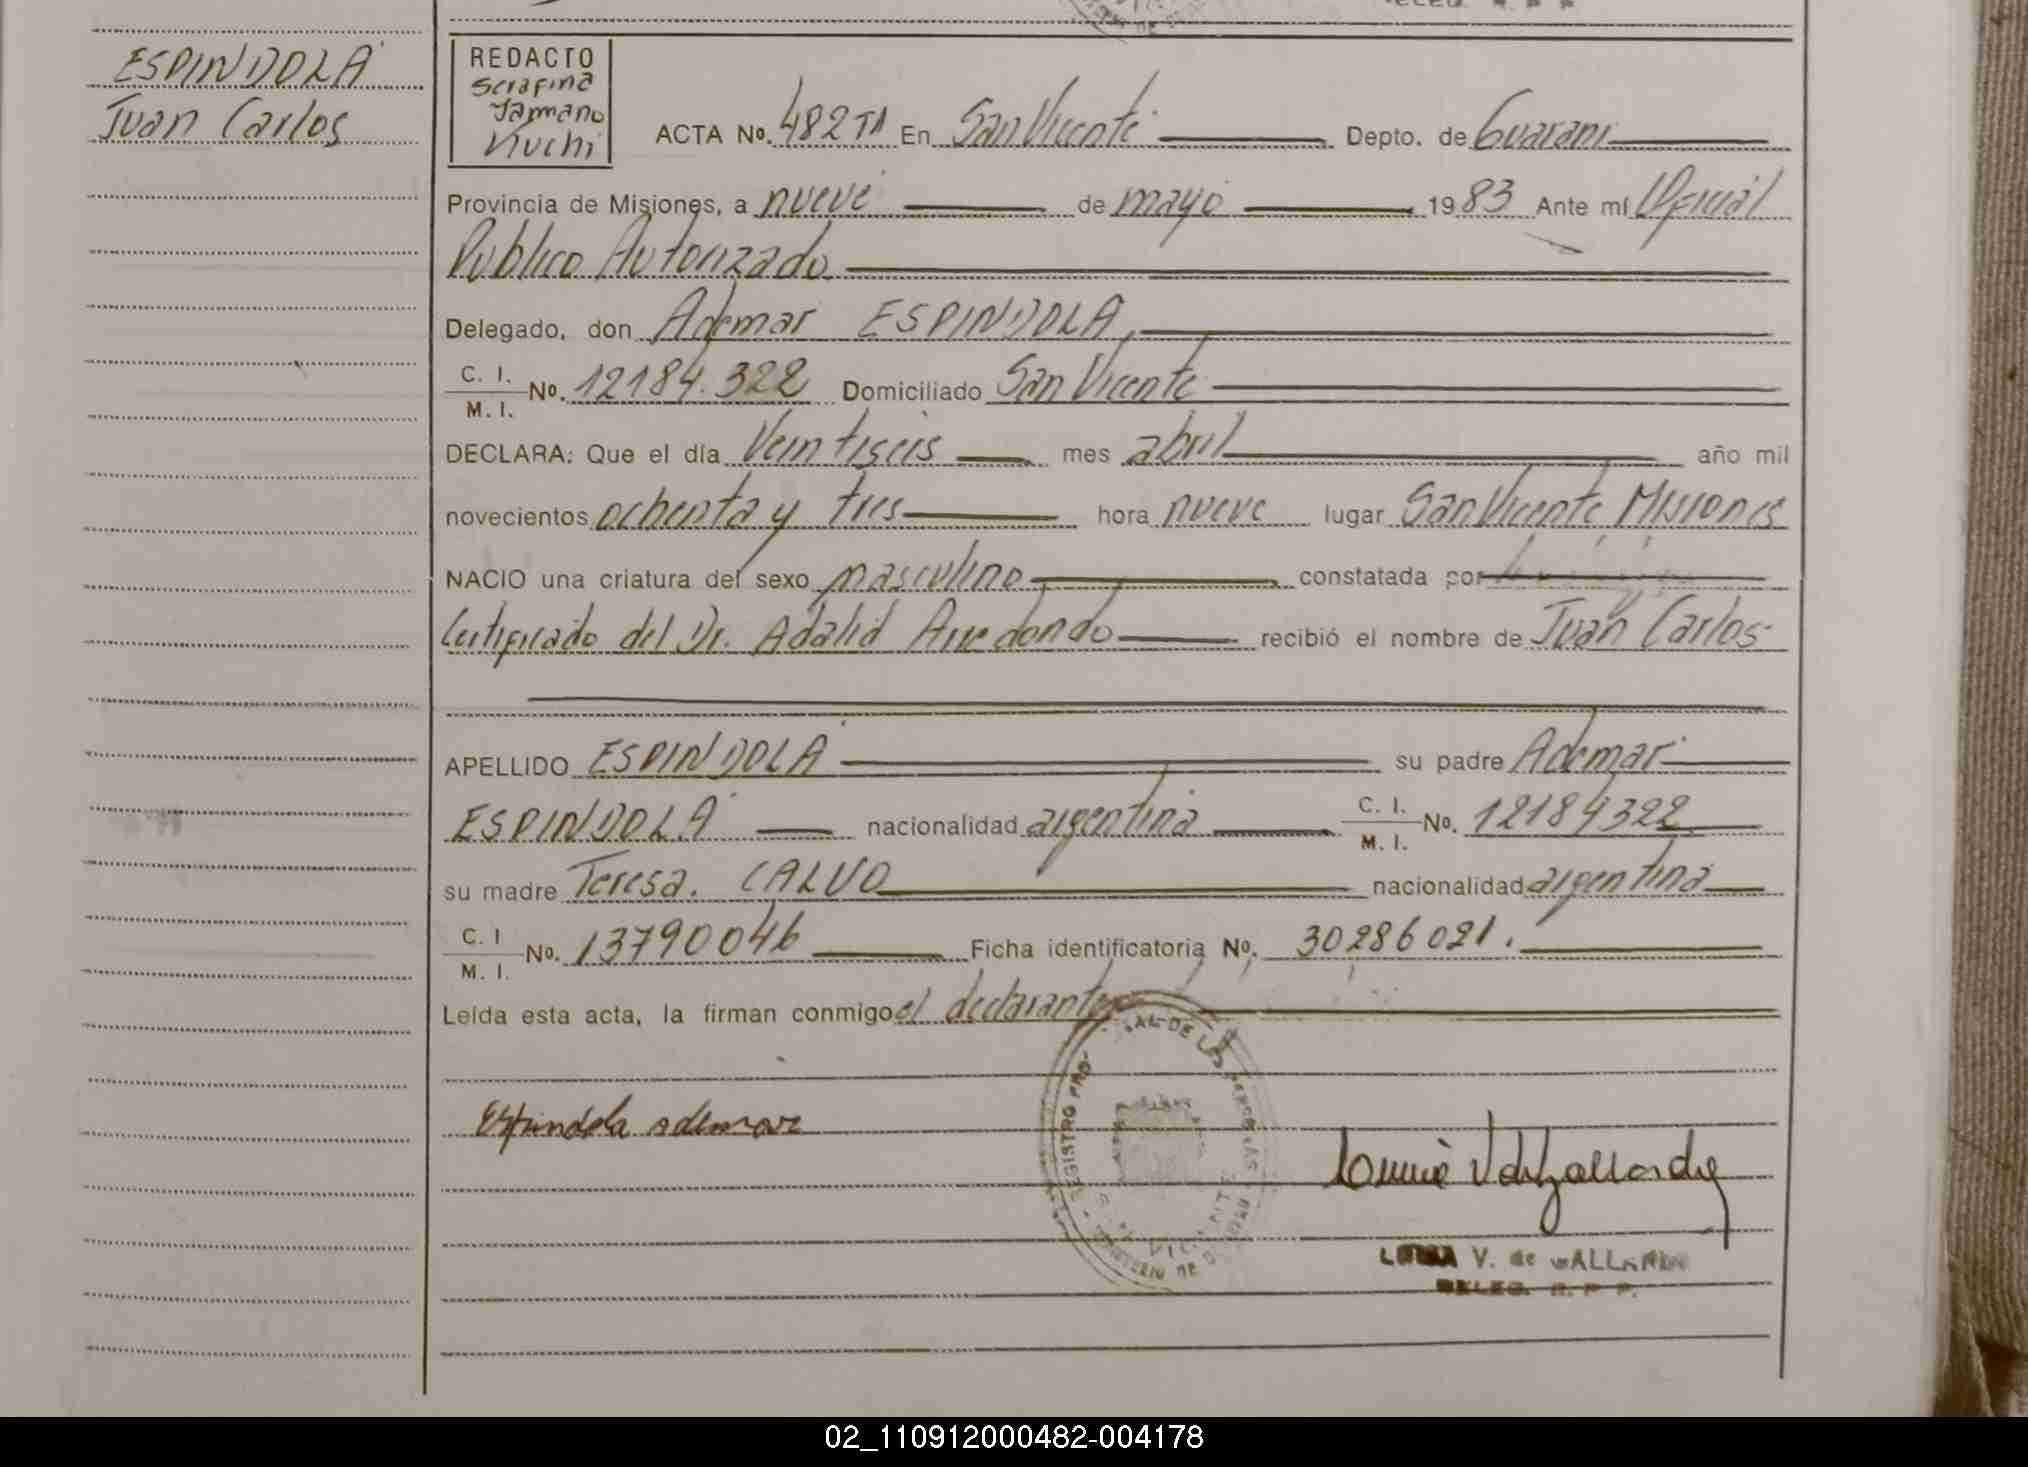 ESPINDOLA
Juan Carlos
REDACTO
Serafina
Kiuchi
ACTA Nº. 482 T1 En San Vicente Depto. de Guarani
Provincia de Misiones, a nueve de mayo 1983 Ante mí Oficial
Publico Autorizado
Delegado, don Ademar ESPINDOLA,
C. I.
M. I. Nº. 12184.322 Domiciliado San Vicente
DECLARA: Que el día Veintiseis mes abril año mil
novecientos ochenta y tres hora nueve lugar San Vicente Misiones
NACIO una criatura del sexo masculino constatada por
Certificado del Dr. Adalid Arredondo recibió el nombre de Juan Carlos
APELLIDO ESPINDOLA su padre Ademar
ESPINDOLA nacionalidad argentina C. I.
M. I. Nº. 12184322
su madre Teresa. CALVO nacionalidad argentina
C. I
M. I. Nº. 13790046 Ficha identificatoria Nº. 30286021.
Leída esta acta, la firman conmigo el declarante
Espindola ademar
REGISTRO PRO AL DE LAS PERSONAS
V. de GALLARDO
DELEG. R. P P.
02_110912000482-004178